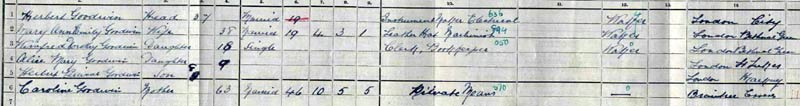 Herbert Goodwin Head 37 Married 19 Instrument Maker Electrical 636 Worker London City
Mary Ann Emily Goodwin Wife 38 Married 19 4 3 1 Leather Bag Machinist Worker London Bethnal Green
Winifred Goodwin Daughter 18 Single Clerk, Bookkeeper 050 Worker London Bethnal Green
4 Alice Mary Goodwin Daughter 9 London St Lukes
5 Goodwin Son London
6 Caroline Goodwin Mother 63 Married 46 10 5 5 Private Means Braintree Essex